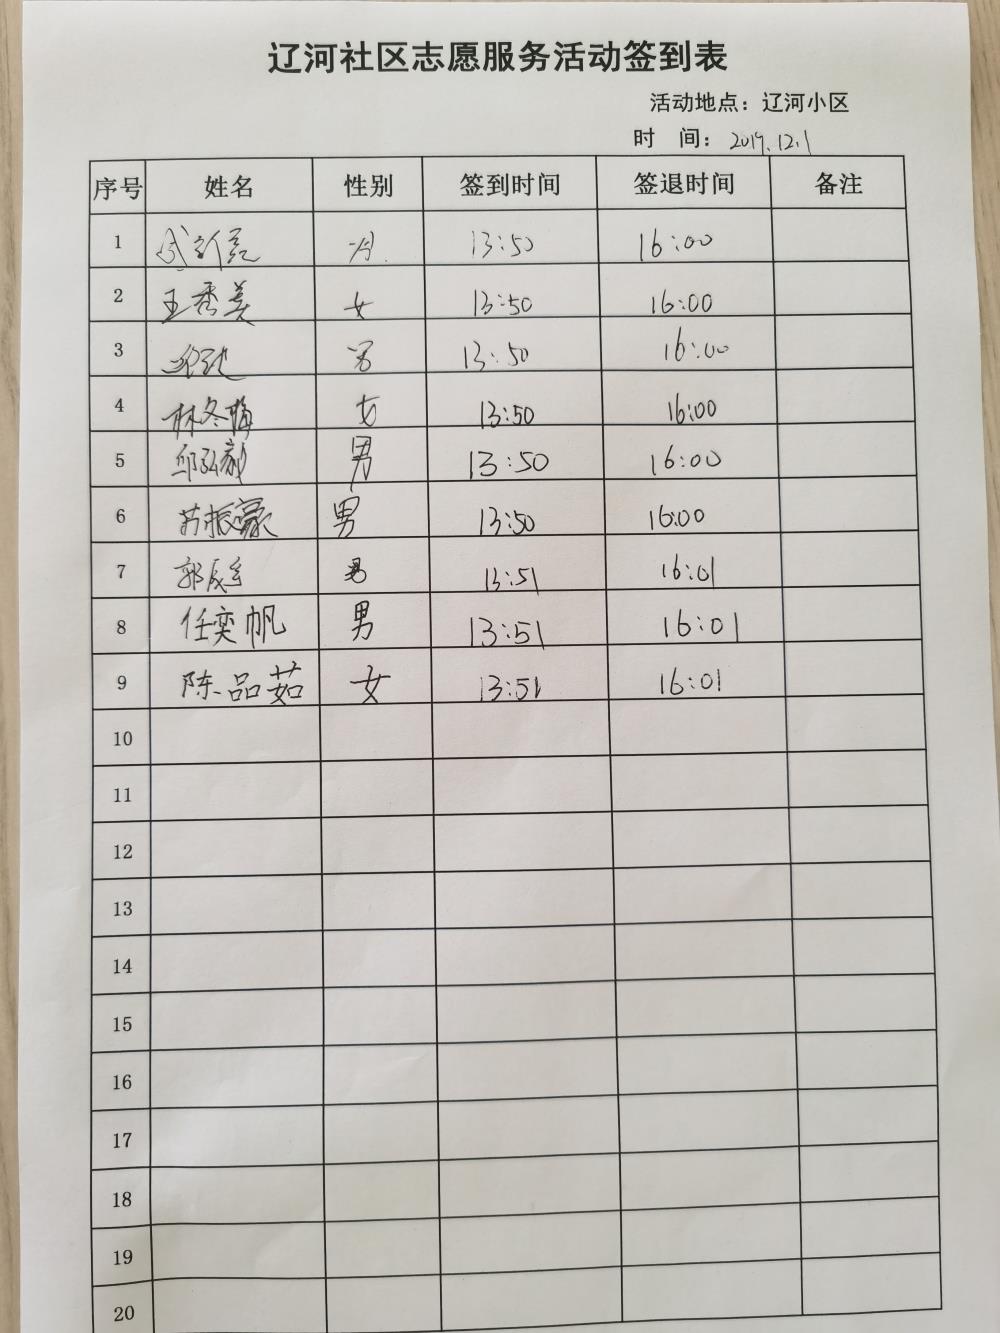 辽河社区志愿服务活动签到表
活动地点：辽河小区
时 间：2019.12.1
序号 姓名 性别 签到时间 签退时间 备注
1 13:50 16:00
2 王秀美 女 13:50 16:00
3 男 13:50 16:00
4 林冬梅 女 13:50 16:00
5 邱弘毅 男 13:50 16:00
6 苏振豪 男 13:50 16:00
7 郭 男 13:51 16:01
8 任奕帆 男 13:51 16:01
9 陈品茹 女 13:51 16:01
10
11
12
13
14
15
16
17
18
19
20